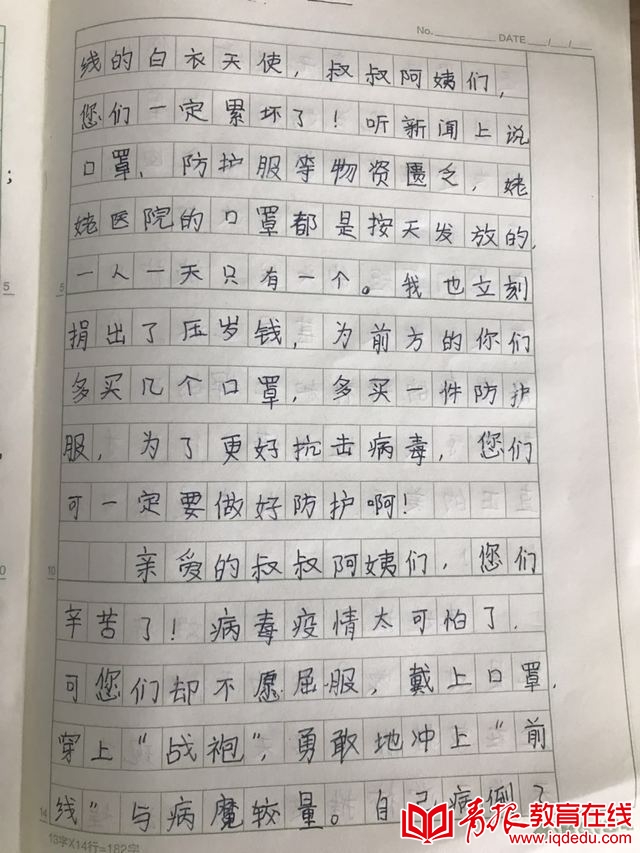 No. DATE / /
线的白衣天使，叔叔阿姨们，
您们一定累坏了！听新闻上说
口罩、防护服等物资匮乏，姥
姥医院的口罩都是按天发放的，
一人一天只有一个。我也立刻
捐出了压岁钱，为前方的你们
多买几个口罩，多买一件防护
服，为了更好抗击病毒，您们
可一定要做好防护啊！
亲爱的叔叔阿姨们，您们
辛苦了！病毒疫情太可怕了，
可您们却不愿屈服，戴上口罩，
穿上“战袍”，勇敢地冲上“前
线”与病魔较量。自己病倒了
5
5
10
0
14
13字X14行=182字
青报教育在线
www.iqdedu.com